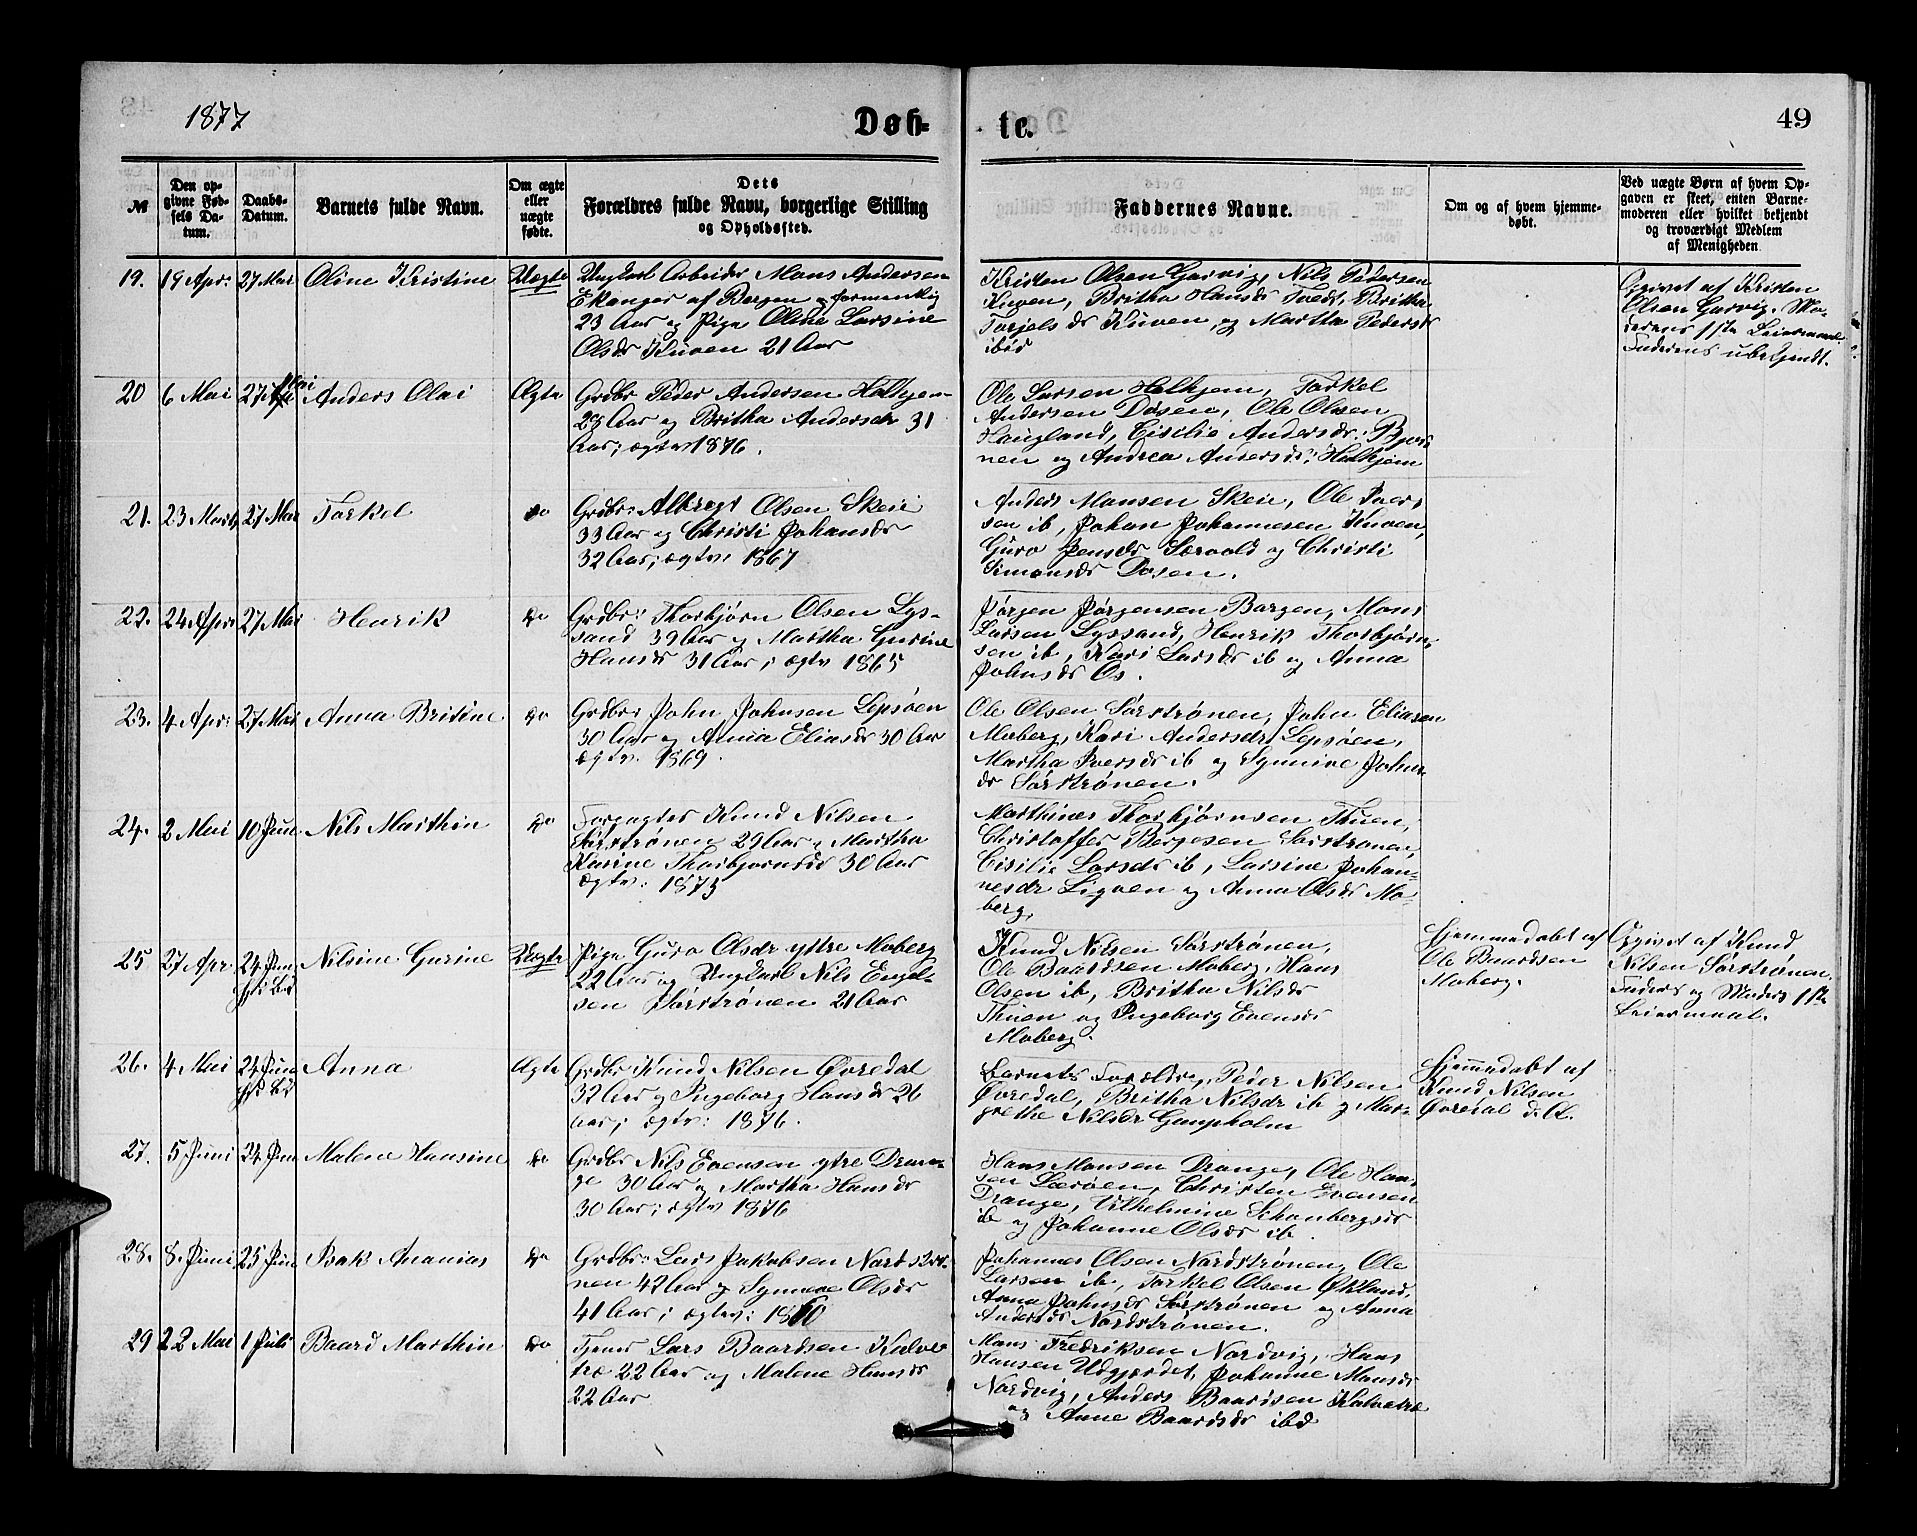 1877
Døb-
te.
49
№
Den op-
givne Fød-
sels Da-
tum.
Daabs-
Datum.
Barnets fulde Navn.
Om ægte
eller
uægte
fødte.
Dets
Forældres fulde Navn, borgerlige Stilling
og Opholdssted.
Faddernes Navne.
Om og af hvem hjemme-
døbt.
Ved uægte Børn af hvem Op-
gaven er skeet, enten Barne-
moderen eller hvilket bekjendt
og troværdigt Medlem
af Menigheden.
19.
19 Apr:
27 Mai
Oline Kristine
Uægte
Ungkarl Arbeider Mons Andersen
Ekanger af Bergen formentlig
23 Aar og Pige Oline Larsine
Olsdr Kuven 21 Aar
Kristen Olsen Garvig, Nils Pedersen
Kuven, Britha Hansdr Tvedt, Britha
Torjelsdr Kuven, og Martha Pedersdr
ibid
Opgivet af Kristen
Olsen Garvig. Mo-
derens 1ste Leiermaal.
Faderens ubekjendt.
20
6 Mai
27 Mai
Anders Olai
Ægte
Grdbr Peder Andersen Halhjem
28 Aar og Britha Andersdr 31
Aar; ægtv 1876.
Ole Larsen Halhjem, Torkel
Andersen Døsen, Ole Olsen
Haugland, Cisilie Andersdr: Bjør-
nen og Andrea Andersdr: Halhjem
21.
23 Marts
27 Mai
Torkel
do
Grdbr: Albregt Olsen Skeie
33 Aar og Christi Johansdr
32 Aar; ægtv: 1867
Anders Monsen Skeie, Ole Iver-
sen ib, Johan Johannesen Kuven,
Guro Jensdr Særvold og Christi
Simonsdr Døsen.
22.
24 Apr:
27 Mai
Henrik
do
Grdbr: Thorbjørn Olsen Lys-
sand 39 Aar og Martha Gurine
Hansdr 31 Aar; ægtv 1865
Jørgen Jørgensen Bergen, Mons
Larsen Lyssand, Henrik Thorbjørn-
sen ib, Kari Larsdr ib og Anna
Johnsdr Os.
23.
4 Apr:
27 Mai
Anna Britine
do
Grdbr: John Johnsen Lepsøen
30 Aar og Anna Eliasdr 30 Aar
ægtv. 1869.
Ole Olsen Sørstrønen, John Eliasen
Moberg, Kari Andersdr Lepsøen,
Martha Iversdr ib og Synnive Johns-
dr Sørstrønen.
24.
2 Mai
10 Juni
Nils Marthin
do
Forpagter Knud Nilsen
Sørstrønen 29 Aar og Martha
Karine Thorbjørnsdr 30 Aar
ægtv: 1873
Marthines Thorbjørnsen Thuen,
Christoffer Børgesen Sørstrønen,
Cisilie Larsdr ib, Larsine Johan-
nesdr Ligven og Anna Olsdr Mo-
berg,
25
27 Apr.
24 Juni
Nilsine Gurine
Uægte
Pige Guro Olsdr yttre Moberg
22 Aar og Ungkarl Nils Engel-
sen Sørstrønen 21 Aar
Knud Nilsen Sørstrønen,
Ole Baardsen Moberg, Hans
Olsen ib, Britha Nilsdr
Thuen og Ingeborg Evensdr
Moberg.
Hjemmedøbt af
Ole Baardsen
Moberg.
Opgivet af Knud
Nilsen Sørstrønen.
Faders og Moders 1ste
Leiermaal.
26.
4 Mai
24 Juni
Anna
Ægte
Grdbr Knud Nilsen Øvredal
32 Aar og Ingeborg Hansdr 26
Aar; ægtv: 1876.
Barnets Forældre, Peder Nilsen
Øvredal, Britha Nilsdr ib og Mar-
grethe Nilsdr Gaupholm
Hjemmedøbt af
Knud Nilsen
Øvredal d. Æ.
27.
5 Juni
24 Juni
Malene Hansine
do
Grdbr Nils Evensen ytre Dran-
ge 30 Aar og Martha Hansdr
30 Aar; ægtv 1876
Hans Monsen Drange, Ole Han-
sen Lærøen, Christen Evensen
Drange, Vilhelmine Schanbergsdr
ib og Johanne Olsdr ib.
28.
8. Juni
25 Juni
Isak Ananias
do
Grdbr: Lars Jakobsen Nordstrø-
nen 42 Aar og Synneve Olsdr
41 Aar; ægtv: 1860
Johannes Olsen Nordstrønen, Ole
Larsen ib, Torkel Olsen Økland,
Anna Johnsdr Sørstrønen og Anna
Andersdr Nordstrønen.
29
22 Mai
1 Juli
Baard Marthin
do
Tjener Lars Baardsen Kalve
træ 22 Aar og Malene Hansdr
22 Aar
Mons Fredriksen Nordvig, Hans
Hansen Udgjærdet, Johanne Monsdr
Nordvig, Anders Baardsen Kalvetræ
og Anne Baardsdr ibd